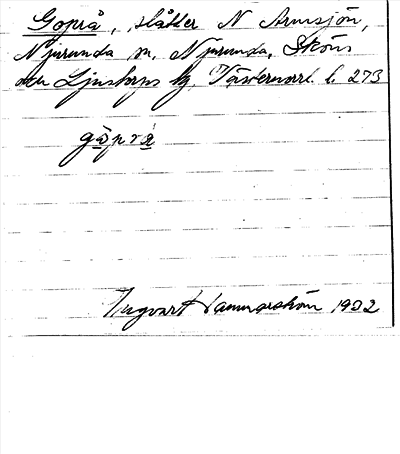 Goprå, slåtter N Armsjön,
Njurunda sn, Njurunda, Sköns
och Ljustorps tg, Västernorrl. l. 273
gåprå
Ingvart Hammarström 1932